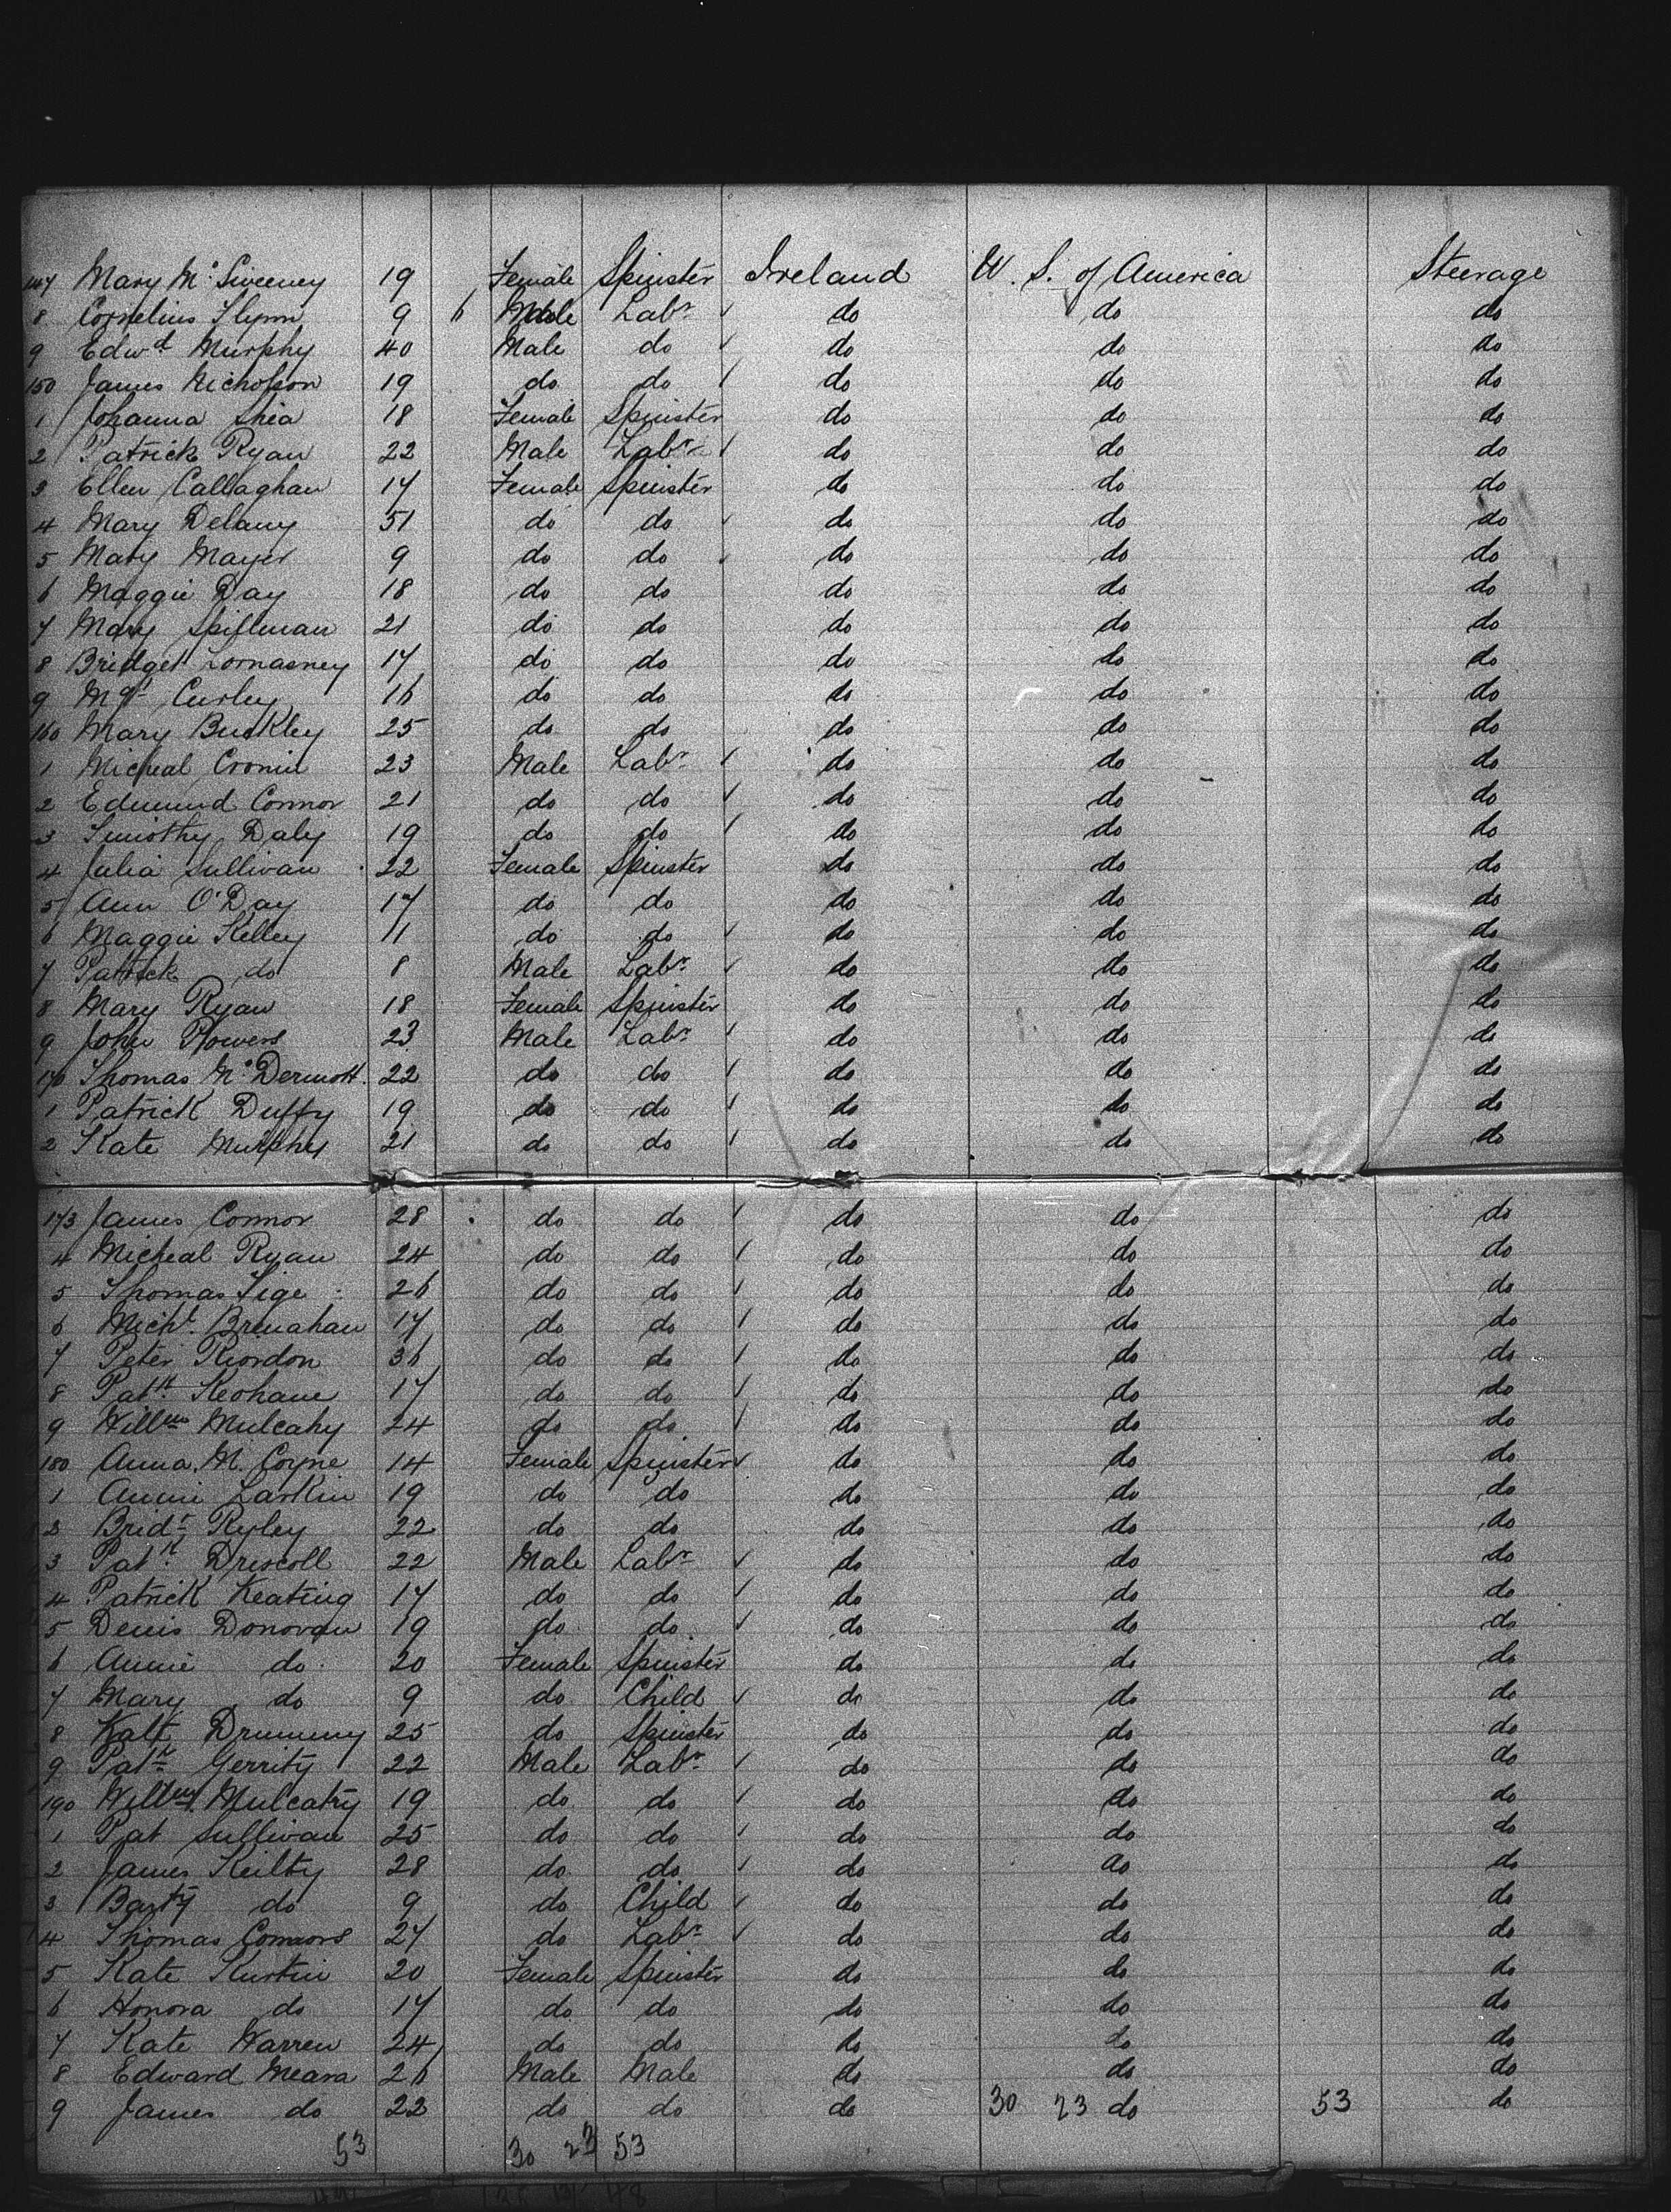 147 Mary McSweeney 19 Female Spinster Ireland U. S. of America Steerage
8 Cornelius Flynn 9 6 Male Labr do do do
9 Edwd Murphy 40 Male do do do do
150 James Nicholson 19 do do do do do
1 Johanna Shea 18 Female Spinster do do do
2 Patrick Ryan 22 Male Labr do do do
3 Ellen Callaghan 17 Female Spinster do do do
4 Mary Delany 51 do do do do do
5 Mary Mayer 9 do do do do do
6 Maggie Day 18 do do do do do
7 Mary Spillman 21 do do do do do
8 Bridget Lomasney 17 do do do do do
9 Mgt Curley 16 do do do do do
160 Mary Buckley 25 do do do do do
1 Micheal Cronin 23 Male Labr do do do
2 Edmund Connor 21 do do do do do
3 Timothy Daly 19 do do do do do
4 Julia Sullivan 22 Female Spinster do do do
5 Ann O'Day 17 do do do do do
6 Maggie Kelley 11 do do do do do
7 Patrick do 8 Male Labr do do do
8 Mary Ryan 18 Female Spinster do do do
9 John Powers 23 Male Labr do do do
170 Thomas McDermott 22 do do do do do
1 Patrick Duffy 19 do do do do do
2 Kate Murphy 21 do do do do do
173 James Connor 28 do do do do do
4 Micheal Ryan 24 do do do do do
5 Thomas Tige 26 do do do do do
6 Michl Brenahan 17 do do do do do
7 Peter Riordon 36 do do do do do
8 Patk Keohane 17 do do do do do
9 Willm Mulcahy 24 do do do do do
180 Anna M. Coyne 14 Female Spinster do do do
1 Annie Larkin 19 do do do do do
2 Bridt Ryley 22 do do do do do
3 Patk Driscoll 22 Male Labr do do do
4 Patrick Keating 17 do do do do do
5 Denis Donovan 19 do do do do do
6 Annie do 20 Female Spinster do do do
7 Mary do 9 do Child do do do
8 Kate Drummy 25 do Spinster do do do
9 Patk Gerrity 22 Male Labr do do do
190 Willm Mulcahy 19 do do do do do
1 Pat Sullivan 25 do do do do do
2 James Keilty 28 do do do do do
3 Barty do 9 do Child do do do
4 Thomas Connors 27 do Labr do do do
5 Kate Kurtin 20 Female Spinster do do do
6 Honora do 17 do do do do do
7 Kate Warren 24 do do do do do
8 Edward Meara 26 Male Male do do do
9 James do 22 do do do 30 23 do 53 do
53 30 23 53